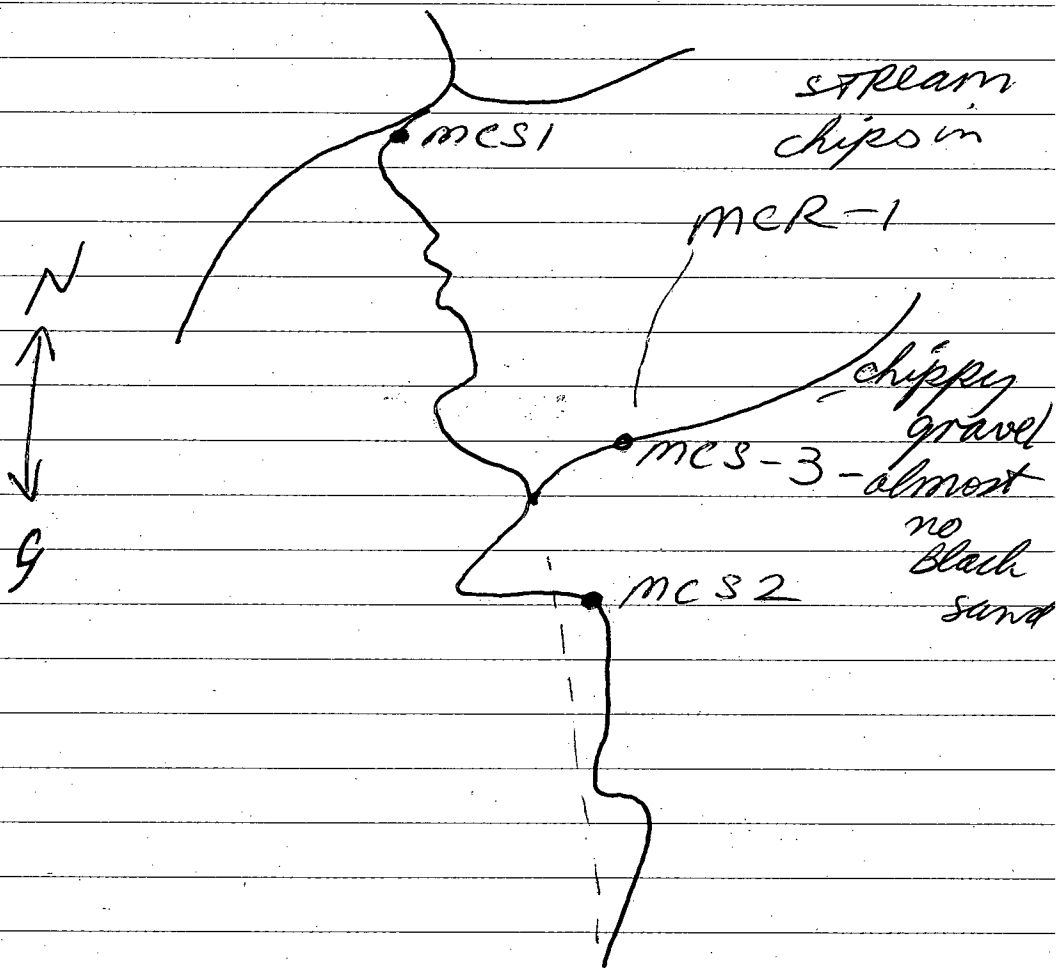 stream
chips in
MCS1
MCR-1
N
chippy
gravel
MCS-3 - almost
no
Black
sand
S
MCS2